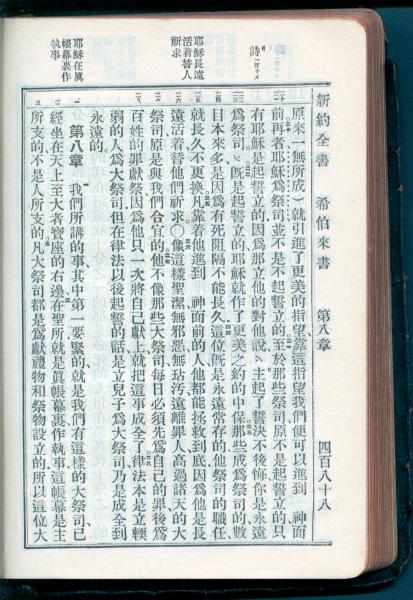 新約全書 希伯來書 第八章 四百八十八
原來一無所成）就引進了更美的指望、靠這指望我們便可以進到 神面
前、再者、耶穌爲祭司、並不是不起誓立的、至於那些祭司、原不是起誓立的、只
有耶穌是起誓立的、因爲那立他的對他說、主起了誓決不後悔、你是永遠
爲祭司、旣是起誓立的、耶穌就作了更美之約的中保、那些成爲祭司的、數
目本來多、是因爲有死阻隔不能長久、這位旣是永遠常存的、他祭司的職任、
就長久不更換、凡靠着他進到 神面前的人、他都能拯救到底、因爲他是長
遠活着、替他們祈求、○像這樣聖潔、無邪惡、無玷汚、遠離罪人、高過諸天的大
祭司、原是與我們合宜的、他不像那些大祭司、每日必須先爲自己的罪、後爲
百姓的罪獻祭、因爲他只一次將自己獻上、就把這事成全了、律法本是立輭
弱的人爲大祭司、但在律法以後起誓的話、是立兒子爲大祭司、乃是成全到
永遠的、
第八章 我們所講的事、其中第一要緊的、就是我們有這樣的大祭司、已
經坐在天上至大者寶座的右邊、在聖所、就是眞帳幕裏作執事、這帳幕是主
所支的、不是人所支的、凡大祭司都是爲獻禮物和祭物設立的、所以這位大
詩
耶穌長遠
活着替人
祈求
耶穌在眞
帳幕裏作
執事